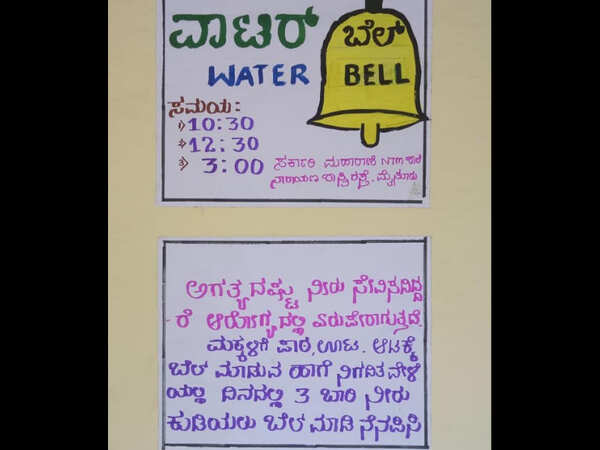 ವಾಟರ್ ಬೆಲ್
WATER BELL
ಸಮಯ:
10:30
12:30
3:00
ಸರ್ಕಾರಿ ಮಹಾರಾಣಿ NTM ಶಾಲೆ
ನಾರಾಯಣ ಶಾಸ್ತ್ರಿ ರಸ್ತೆ. ಮೈಸೂರು
ಅಗತ್ಯ ದಷ್ಟು ನೀರು ಸೇವಿಸದಿದ್ದ
ರೆ ಆರೋಗ್ಯದಲ್ಲಿ ಏರುಪೇರಾಗುತ್ತದೆ.
ಮಕ್ಕಳಿಗೆ ಪಾಠ, ಊಟ. ಆಟಕ್ಕೆ
ಬೆಲ್ ಮಾಡುವ ಹಾಗೆ ನಿಗದಿತ ವೇಳೆ
ಯಲ್ಲಿ ದಿನದಲ್ಲಿ 3 ಬಾರಿ ನೀರು
ಕುಡಿಯಲು ಬೆಲ್ ಮಾಡಿ ನೆನಪಿಸಿ